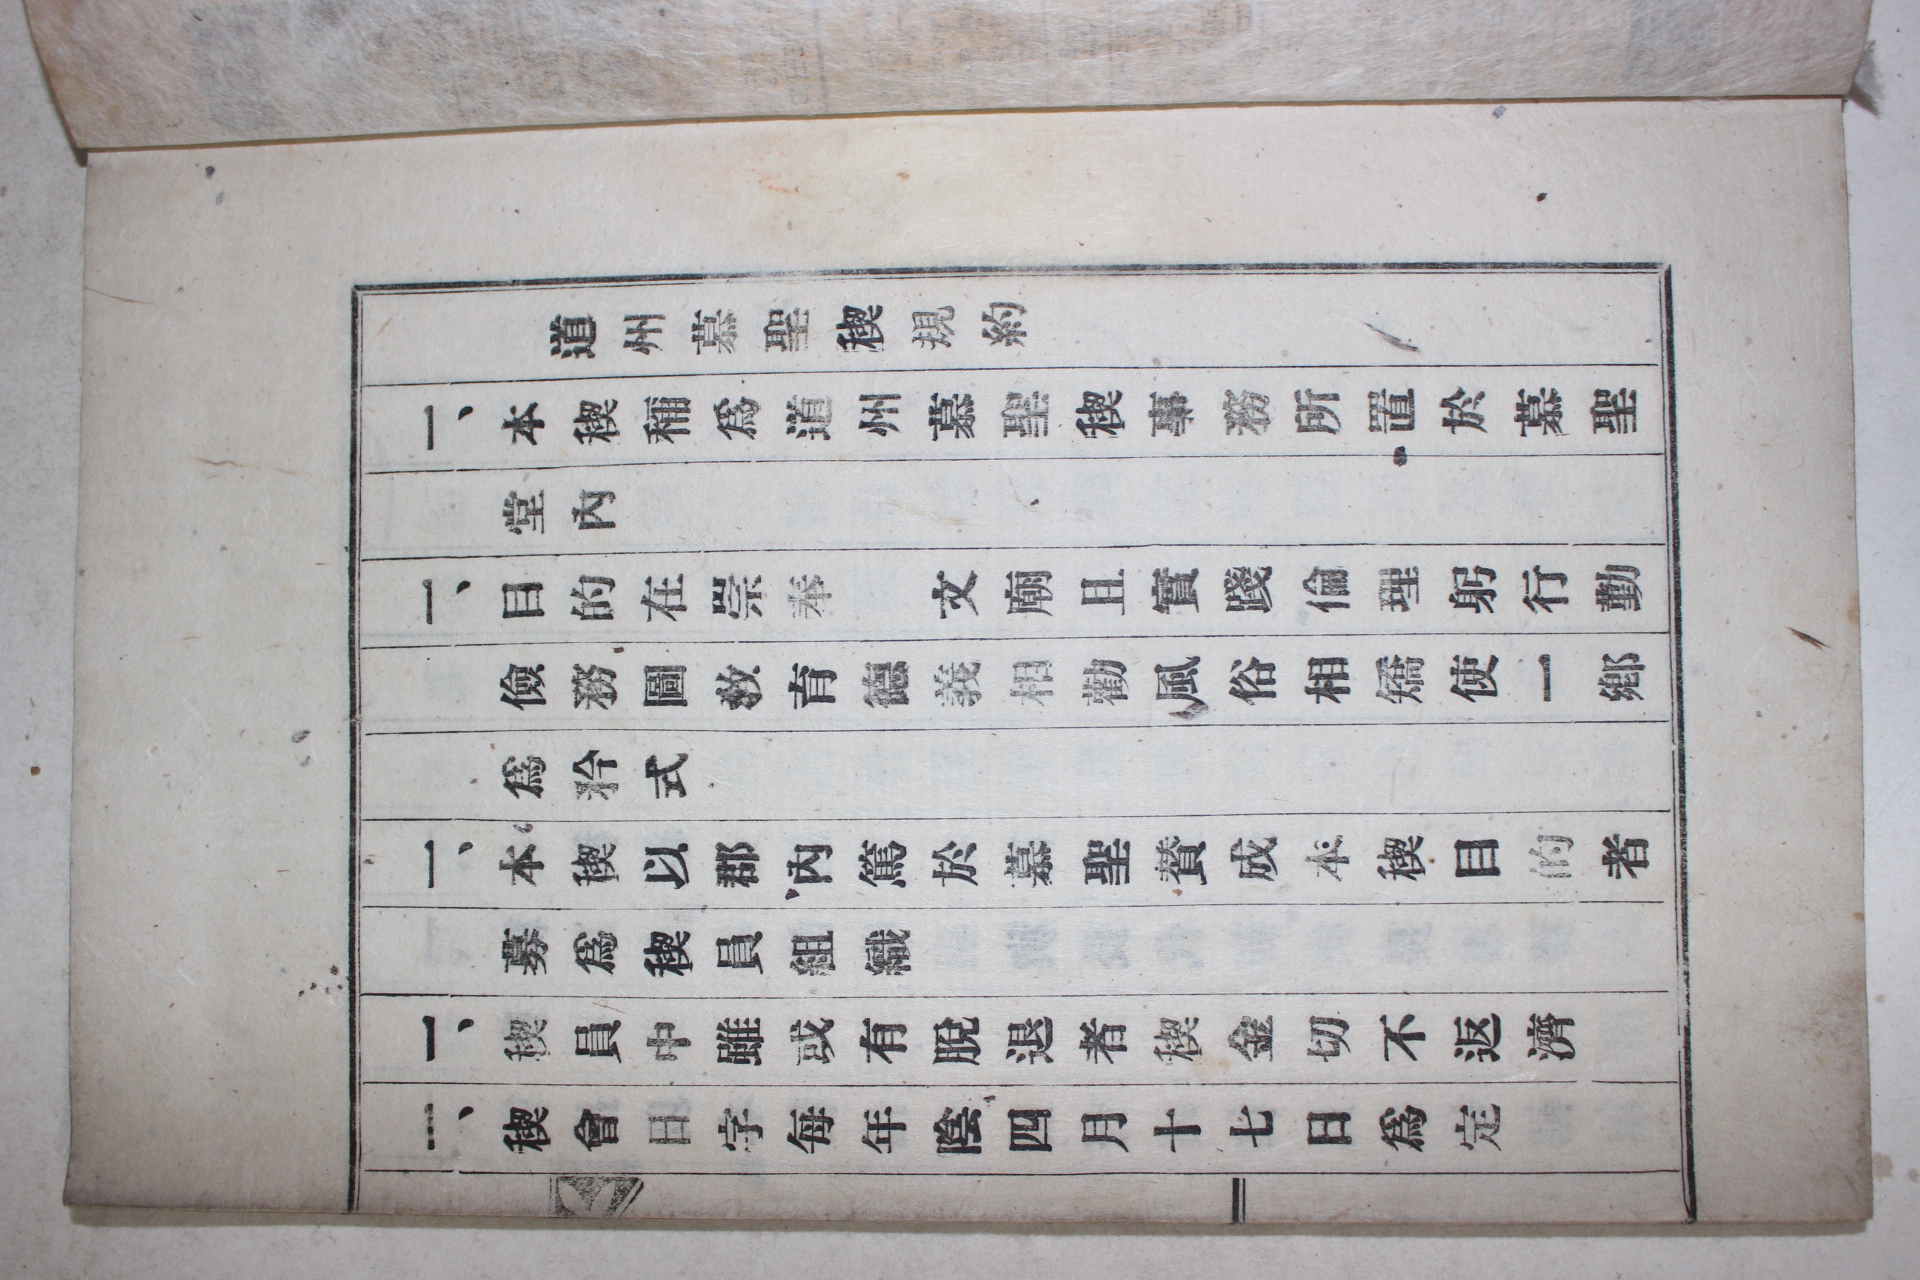 道州慕聖稧規約
一、本稧稱爲道州慕聖稧事務所置於慕聖
堂內
一、目的在崇奉　文廟且實踐倫理躬行勤
儉務圖敎育德義相勸風俗相矯使一鄕
爲矜式
一、本稧以郡內篤於慕聖贊成本稧目的者
募爲稧員組織
一、稧員中雖或有脫退者稧金切不返濟
一、稧會日字每年陰四月十七日爲定